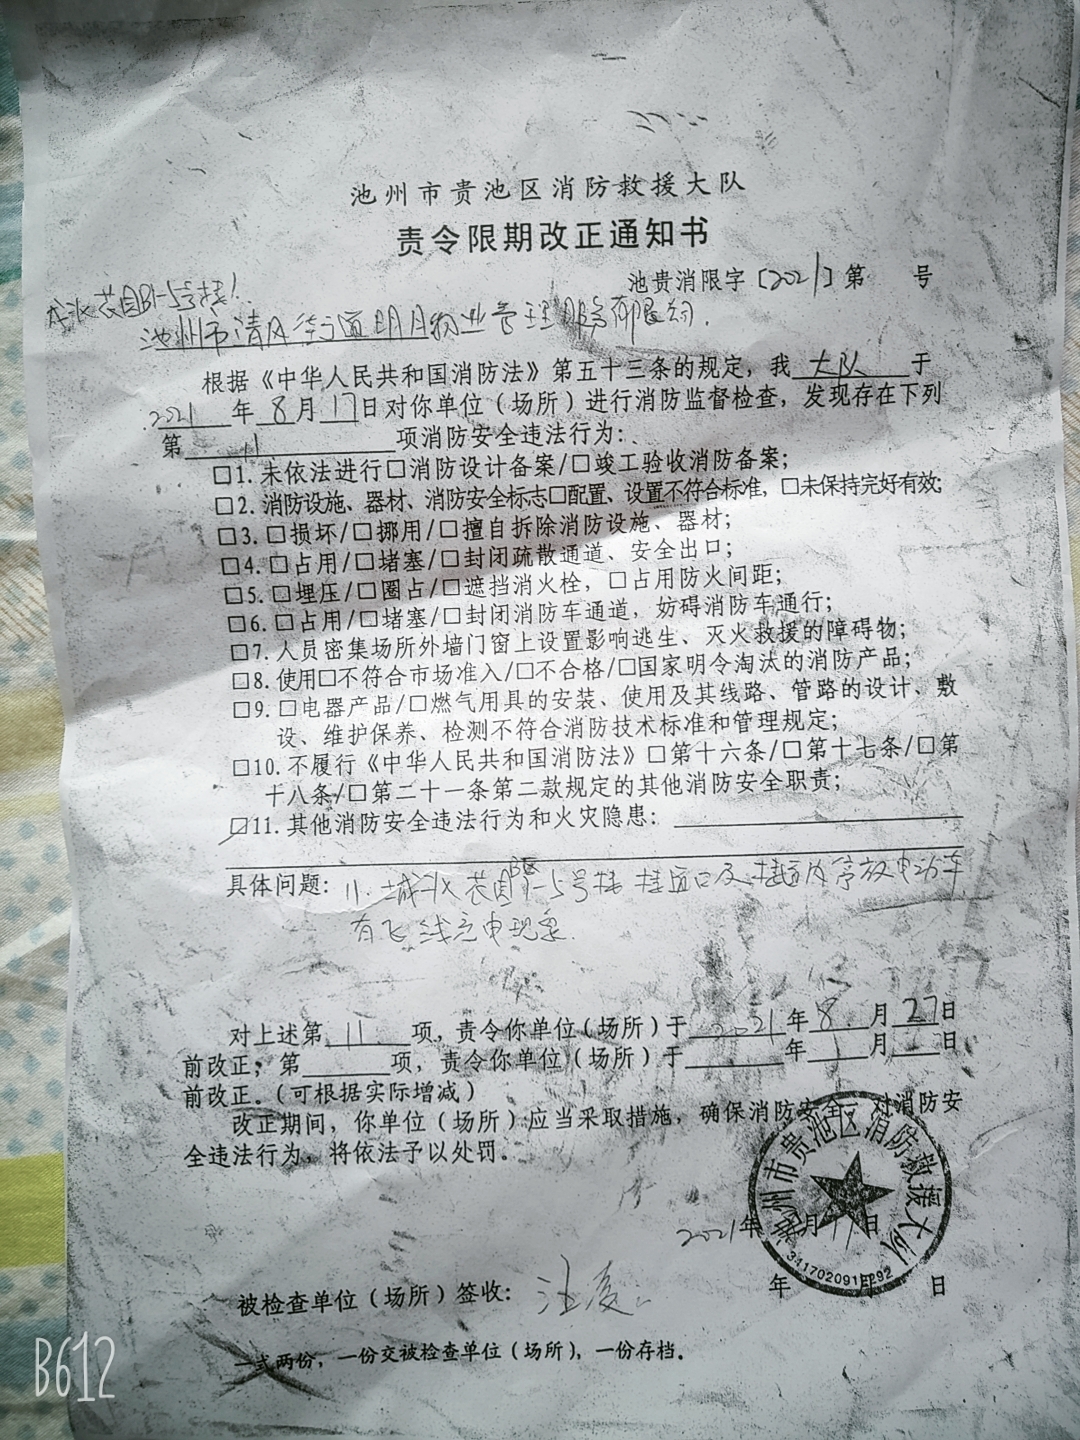 池州市贵池区消防救援大队
责令限期改正通知书
池贵消限字〔2021〕第 号
花园B1-5号楼！
池州市清风街道明月物业管理服务有限公司.
根据《中华人民共和国消防法》第五十三条的规定，我 大队 于
2021 年 8 月 17 日对你单位（场所）进行消防监督检查，发现存在下列
第 11 项消防安全违法行为：
□1. 未依法进行□消防设计备案/□竣工验收消防备案；
□2. 消防设施、器材、消防安全标志□配置、设置不符合标准，□未保持完好有效；
□3. □损坏/□挪用/□擅自拆除消防设施、器材；
□4. □占用/□堵塞/□封闭疏散通道、安全出口；
□5. □埋压/□圈占/□遮挡消火栓，□占用防火间距；
□6. □占用/□堵塞/□封闭消防车通道，妨碍消防车通行；
□7. 人员密集场所外墙门窗上设置影响逃生、灭火救援的障碍物；
□8. 使用□不符合市场准入/□不合格/□国家明令淘汰的消防产品；
□9. □电器产品/□燃气用具的安装、使用及其线路、管路的设计、敷
设、维护保养、检测不符合消防技术标准和管理规定；
□10. 不履行《中华人民共和国消防法》□第十六条/□第十七条/□第
十八条/□第二十一条第二款规定的其他消防安全职责；
□11. 其他消防安全违法行为和火灾隐患：
具体问题： 11. 城 花园B区1-5号楼 楼道口及楼道内停放电动车
有飞线充电现象.
对上述第 11 项，责令你单位（场所）于 2021 年 8 月 27 日
前改正；第 项，责令你单位（场所）于 年 月 日
前改正。（可根据实际增减）
改正期间，你单位（场所）应当采取措施，确保消防安全。对消防安
全违法行为，将依法予以处罚。
池州市贵池区消防救援大队
2021年 月17日
年 月 日
被检查单位（场所）签收： 汪
一式两份，一份交被检查单位（场所），一份存档。
B612